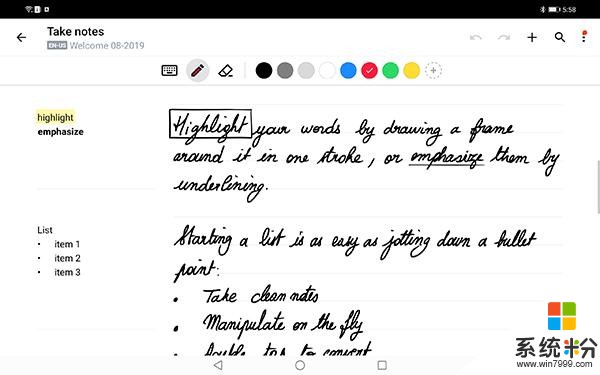 5:58
Take notes
EN-US Welcome 08-2019
highlight
emphasize
Highlight your words by drawing a frame
around it in one stroke, or emphasize them by
underlining.
List
• item 1
• item 2
• item 3
Starting a list is as easy as jotting down a bullet
point:
• Take clean notes
• Manipulate on the fly
• Double tap to convert
系统粉
www.win7999.com